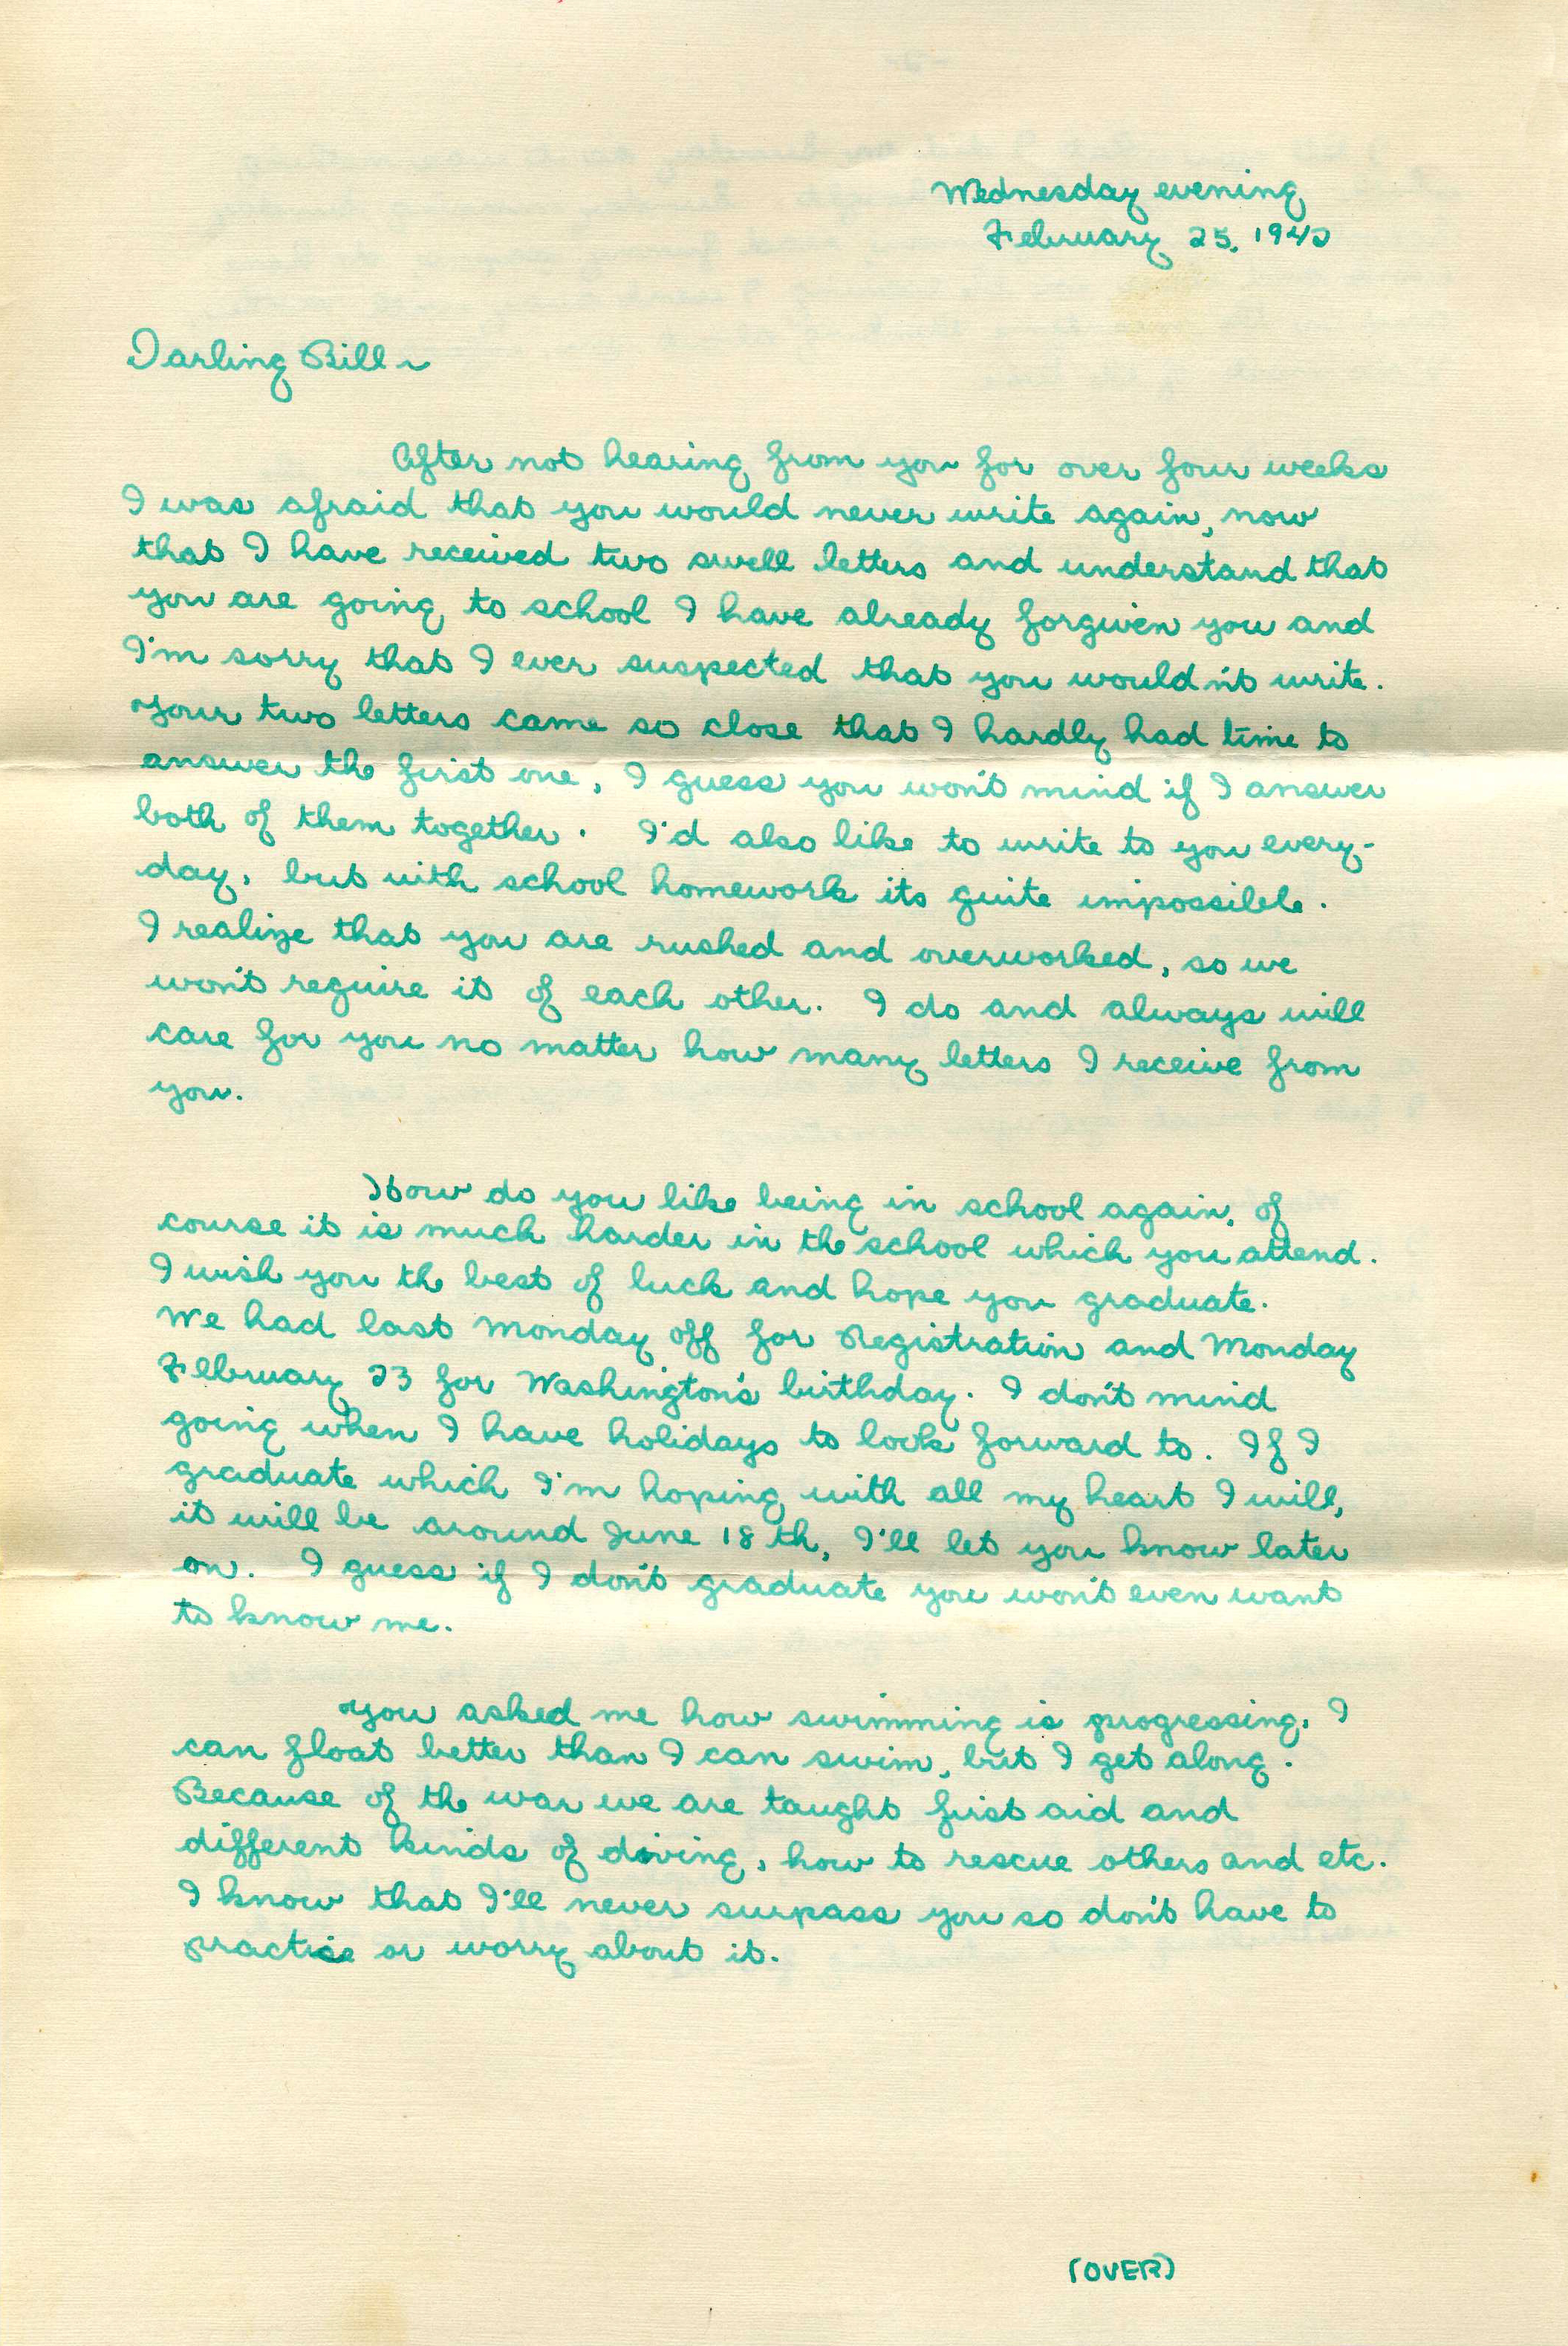 Wednesday evening
February 25, 1942
Darling Bill ~
After not hearing from you for over four weeks
I was afraid that you would never write again, now
that I have received two swell letters and understand that
you are going to school I have already forgiven you and
I'm sorry that I ever suspected that you wouldn't write.
Your two letters came so close that I hardly had time to
answer the first one, I guess you won't mind if I answer
both of them together. I'd also like to write to you every-
day, but with school homework its quite impossible.
I realize that you are rushed and overworked, so we
won't require it of each other. I do and always will
care for you no matter how many letters I receive from
you.
How do you like being in school again, of
course it is much harder in the school which you attend.
I wish you the best of luck and hope you graduate.
We had last Monday off for Registration and Monday
February 23 for Washington's birthday. I don't mind
going when I have holidays to look forward to. If I
graduate which I'm hoping with all my heart I will,
it will be around June 18th, I'll let you know later
on. I guess if I don't graduate you won't even want
to know me.
You asked me how swimming is progressing, I
can float better than I can swim, but I get along.
Because of the war we are taught first aid and
different kinds of diving, how to rescue others and etc.
I know that I'll never surpass you so don't have to
practice or worry about it.
(OVER)